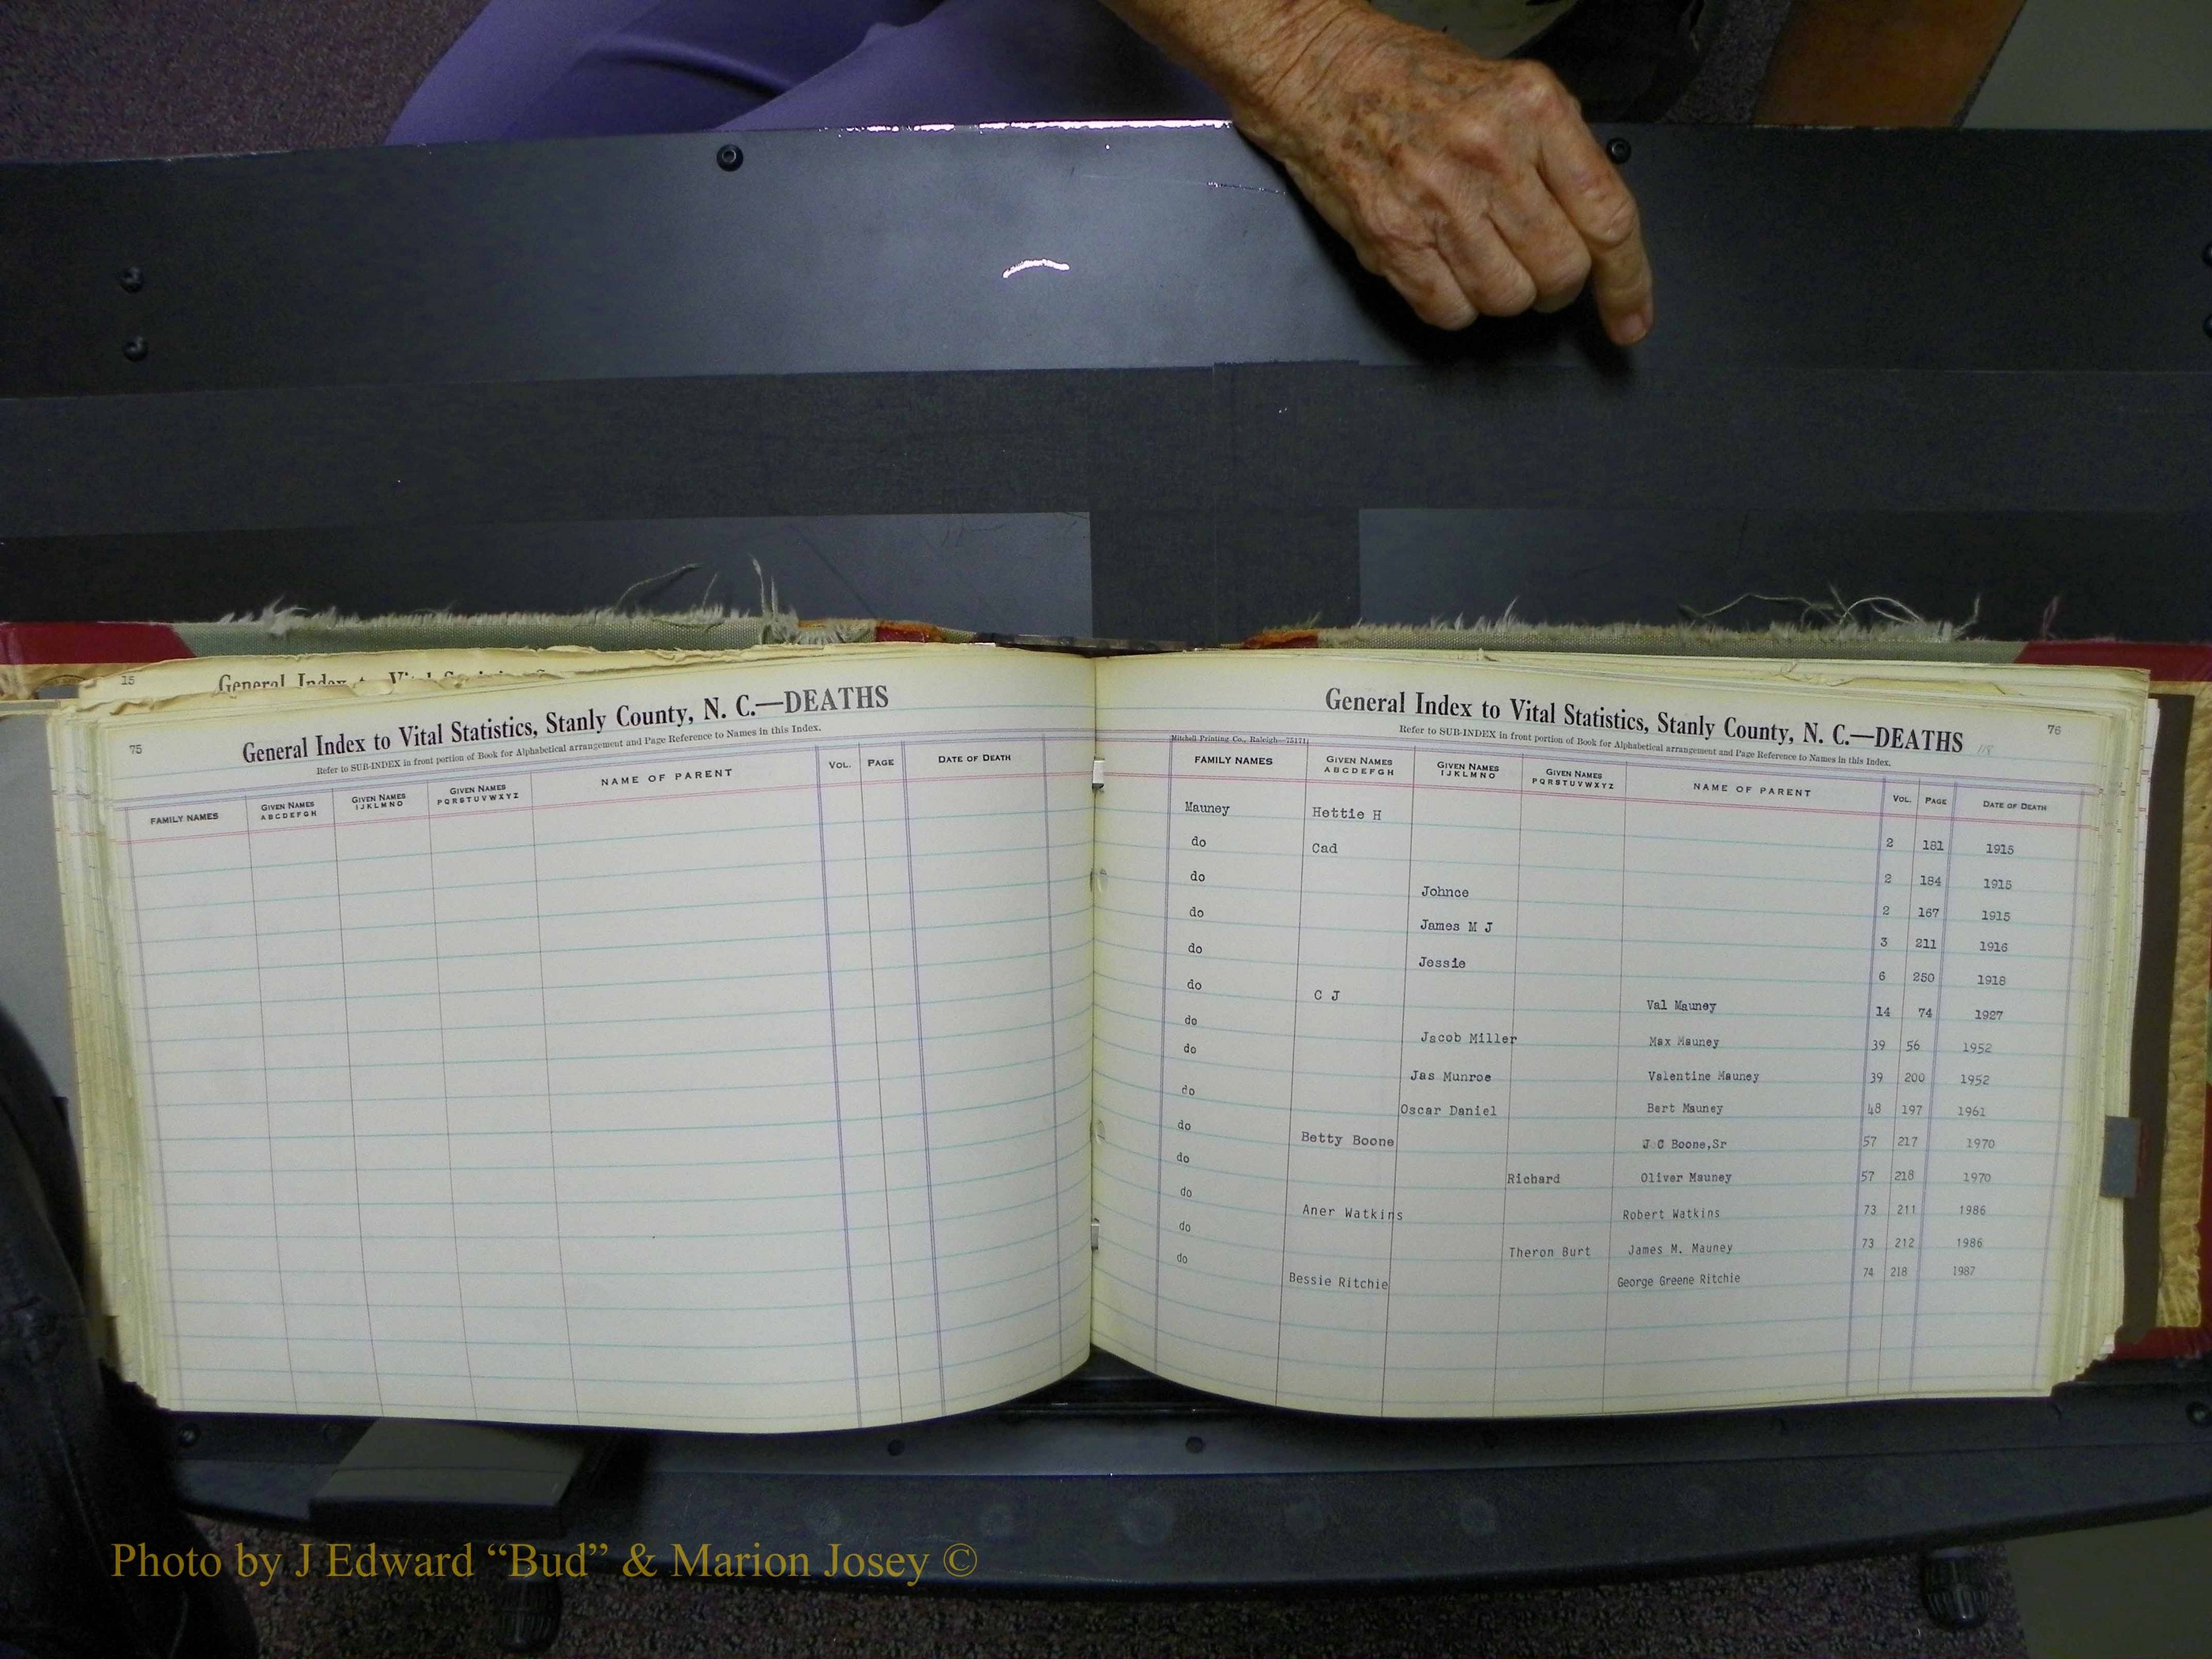 15
General Index to Vital Statistics
75
General Index to Vital Statistics, Stanly County, N. C.—DEATHS
Refer to SUB-INDEX in front portion of Book for Alphabetical arrangement and Page Reference to Names in this Index.
FAMILY NAMES GIVEN NAMES ABCDEFGH GIVEN NAMES IJKLMNO GIVEN NAMES PQRSTUVWXYZ NAME OF PARENT VOL. PAGE DATE OF DEATH
General Index to Vital Statistics, Stanly County, N. C.—DEATHS 118
76
Refer to SUB-INDEX in front portion of Book for Alphabetical arrangement and Page Reference to Names in this Index.
Mitchell Printing Co., Raleigh—75171
FAMILY NAMES GIVEN NAMES ABCDEFGH GIVEN NAMES IJKLMNO GIVEN NAMES PQRSTUVWXYZ NAME OF PARENT VOL. PAGE DATE OF DEATH
Mauney Hettie H 2 181 1915
do Cad 2 184 1915
do Johnce 2 167 1915
do James M J 3 211 1916
do Jessie 6 250 1918
do C J Val Mauney 14 74 1927
do Jacob Miller Max Mauney 39 56 1952
do Jas Munroe Valentine Mauney 39 200 1952
do Oscar Daniel Bert Mauney 48 197 1961
do Betty Boone J C Boone,Sr 57 217 1970
do Richard Oliver Mauney 57 218 1970
do Aner Watkins Robert Watkins 73 211 1986
do Theron Burt James M. Mauney 73 212 1986
do Bessie Ritchie George Greene Ritchie 74 218 1987
Photo by J Edward “Bud” & Marion Josey ©